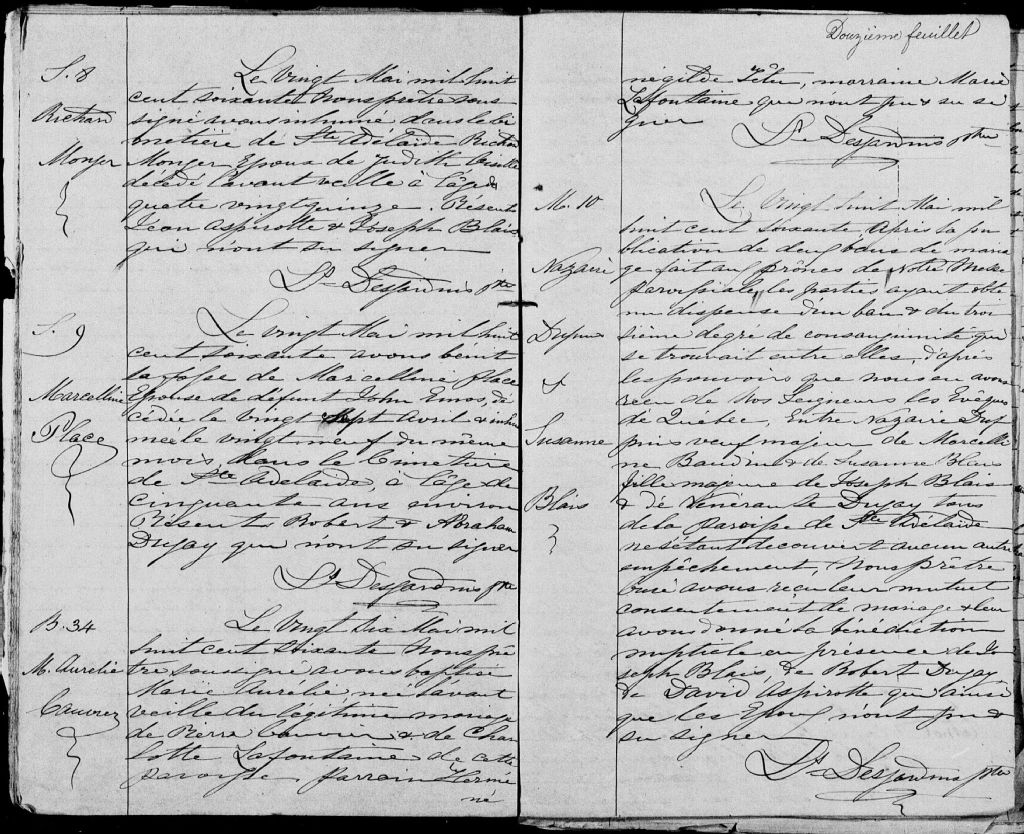 S. 8
Richard
Monger
Le vingt Mai mil huit
cent soixante Nous prêtre sous
signé avons inhumé dans le ci
metière de Ste Adélaïde Richard
Monger Epoux de Judith
décédé l'avant veille à l'âge de
quatre vingt quinze. Présents
Léon Aspirotte & Joseph Blais
qui n'ont su signer
Ls Desjardins ptre
S. 9
Marcelline
Place
Le vingt Mai mil huit
cent soixante avons bénit
la fosse de Marcelline Place
Epouse de défunt John Enos, dé
cédée le vingt sept Avril & inhu
mée le vingt neuf du même
mois, dans le Cimetière
de Ste Adélaïde, à l'âge de
cinquante ans environ
Présents Robert & Abraham
Dugay qui n'ont su signer
Ls Desjardins ptre
B. 34
M. Aurélie
Cauvrez
Le vingt six Mai mil
huit cent soixante Nous prê
tre soussigné avons baptisé
Marie Aurélie née l'avant
veille du légitime mariage
de Pierre & de Char
lotte Lafontaine de cette
paroisse, parrain Hermé
né
Douzième feuillet
négilde Têtu, marraine Marie
Lafontaine qui n'ont pu & su si
gner
Ls Desjardins ptre
M. 10
Nazaire
Dupuis
&
Susanne
Blais
Le vingt huit Mai mil
huit cent soixante Après la pu
blication de deux bans de maria
ge fait au prônes de Notre Messe
paroissiale, les parties ayant obte
nu dispense d'un ban & du troi
sième degré de consanguinité qui
se trouvait entre elles, d'après
les pouvoirs que nous en avons
reçu de Nos Seigneurs les Evêques
de Québec, Entre Nazaire Du
puis veuf majeur de Marcelli
ne Baudin & de Susanne Blais
fille majeure de Joseph Blais
& de Vénérande Dugay tous
de la paroisse de Ste Adélaïde
ne s'étant découvert aucun autre
empêchement, Nous Prêtre
curé avons reçu leur mutuel
consentement de mariage & leur
avons donné la bénédiction
nuptiale en présence de Jo
seph Blais, de Robert Dugay,
de David Aspirotte qui ainsi
que les Epoux n'ont pu &
su signer
Ls Desjardins ptre